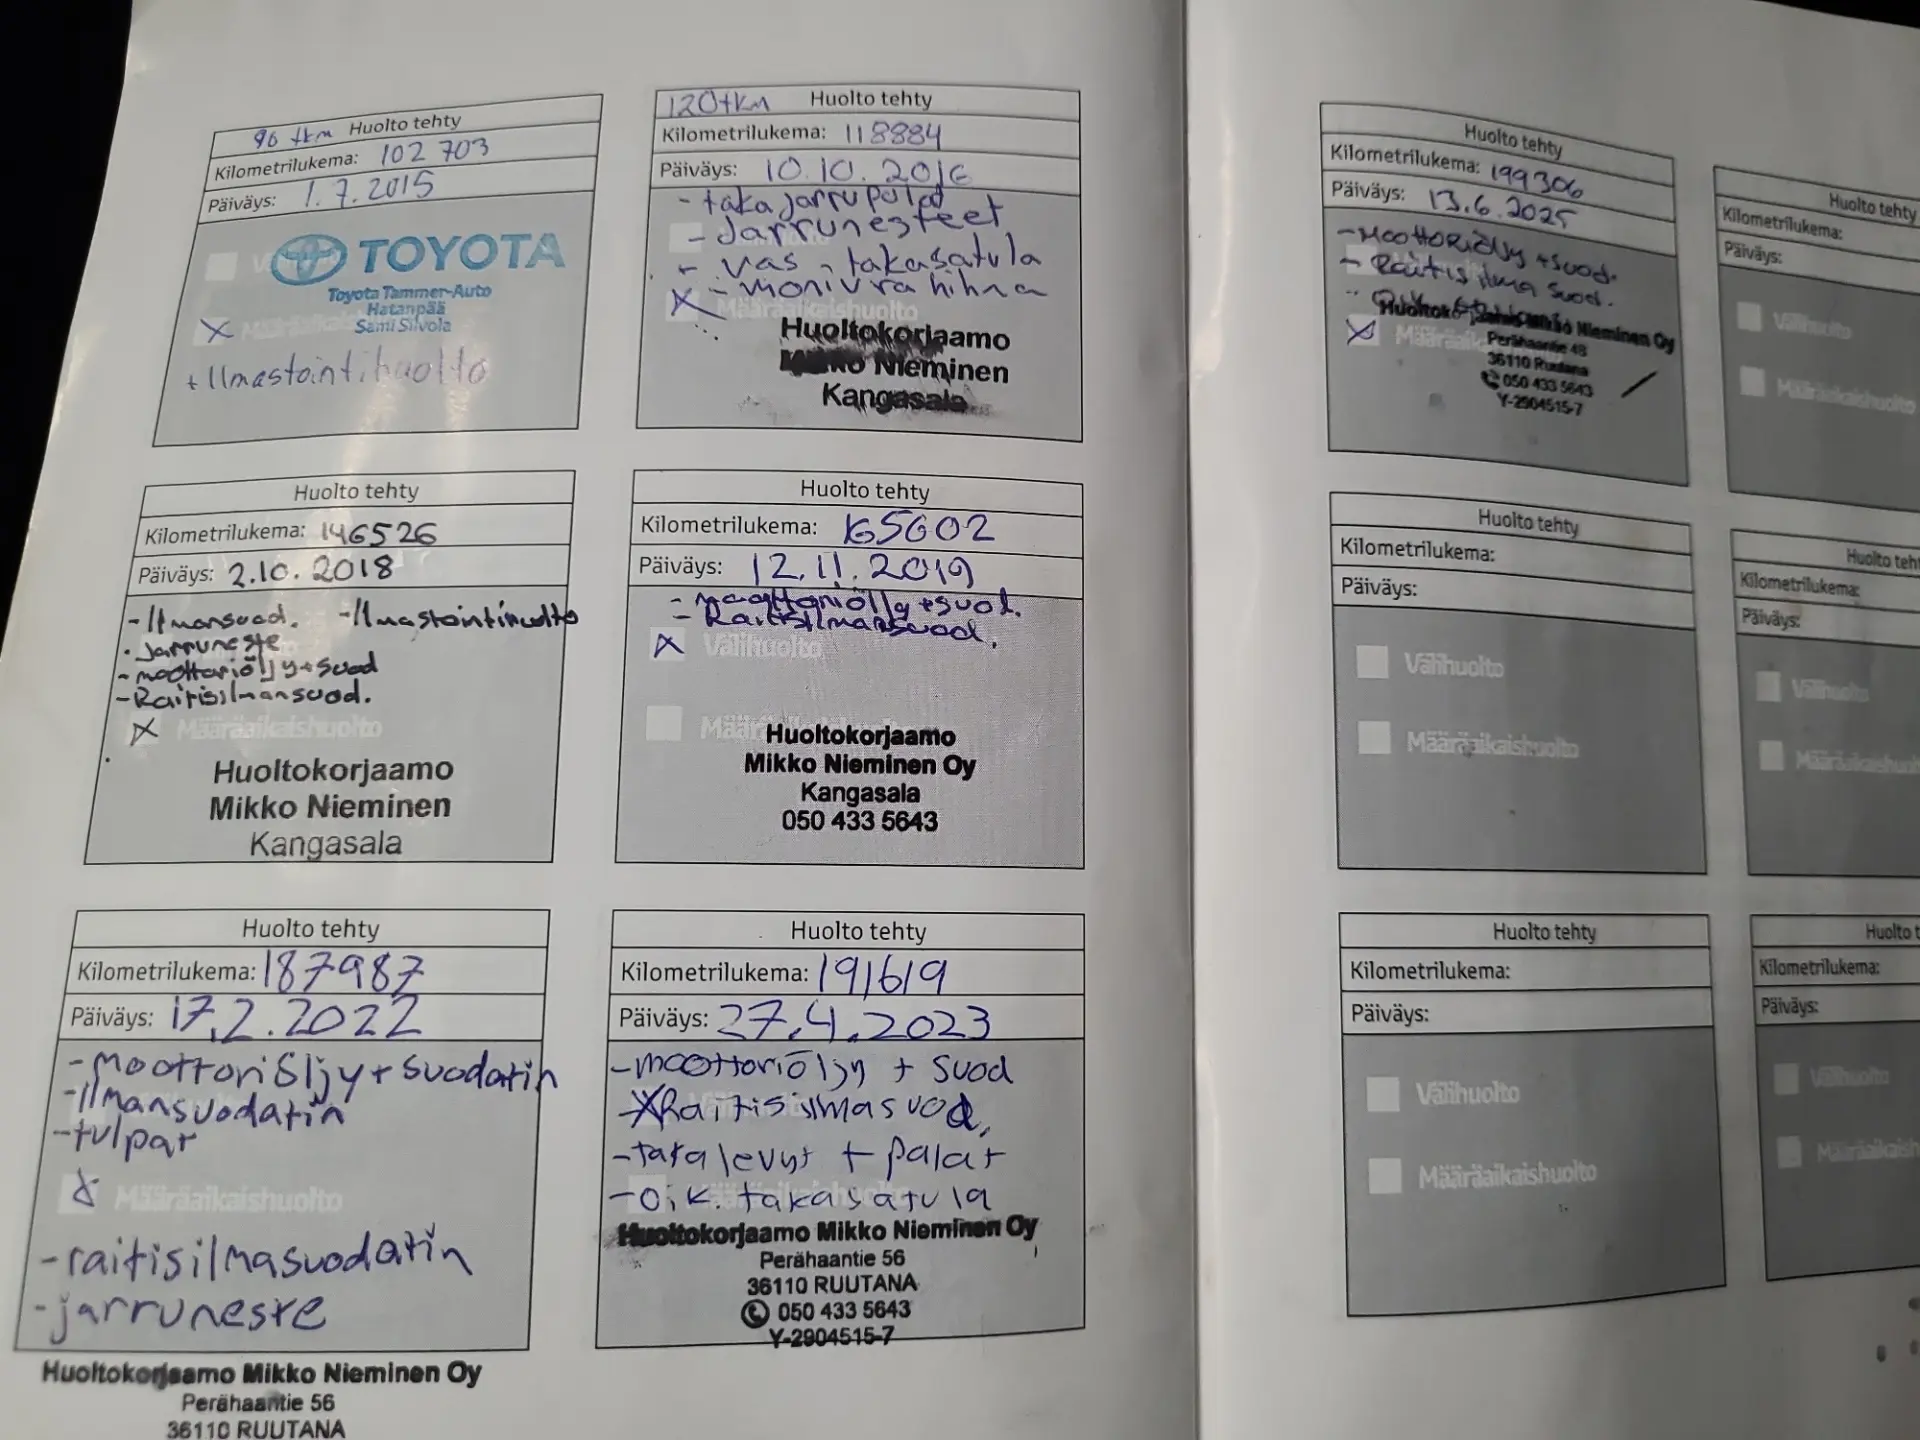 96 tkm Huolto tehty
Kilometrilukema: 102 703
Päiväys: 1.7.2015
TOYOTA
Toyota Tammer-Auto
Hatanpää
Sami Silvola
X Määräaikaishuolto
+ Ilmastointihuolto
120tkm Huolto tehty
Kilometrilukema: 118884
Päiväys: 10.10.2016
- takajarrupalat
- Jarrunesteet
- vas - takasatula
X - monivrahihna
Määräaikaishuolto
Huoltokorjaamo
Mikko Nieminen
Kangasala
Huolto tehty
Kilometrilukema: 146526
Päiväys: 2.10.2018
- Ilmansuod. - Ilmastointihuolto
- Jarruneste
- moottoriöljy+suod
- Raitisilmansuod.
X Määräaikaishuolto
Huoltokorjaamo
Mikko Nieminen
Kangasala
Huolto tehty
Kilometrilukema: 165602
Päiväys: 12.11.2019
- moottoriöljy+suod.
- Raitisilmansuod.
X Välihuolto
Määräaikaishuolto
Huoltokorjaamo
Mikko Nieminen Oy
Kangasala
050 433 5643
Huolto tehty
Kilometrilukema: 187987
Päiväys: 17.2.2022
- moottoriöljy + suodatin
- Ilmansuodatin
- tulpat
X Määräaikaishuolto
- raitisilmasuodatin
- jarruneste
Huoltokorjaamo Mikko Nieminen Oy
Perähaantie 56
36110 RUUTANA
Huolto tehty
Kilometrilukema: 191619
Päiväys: 27.4.2023
- moottoriöljy + suod
- X Raitisilmasuod,
- takalevyt + palat
- oik. takasatula
Huoltokorjaamo Mikko Nieminen Oy
Perähaantie 56
36110 RUUTANA
050 433 5643
Y-2904515-7
Huolto tehty
Kilometrilukema: 199306
Päiväys: 13.6.2025
- Moottoriöljy +suod.
- Raitisilmasuod.
Mikko Nieminen Oy
X Perähaantie 48
36110 Ruutana
050 433 5643
Y-2904515-7
Huolto tehty
Kilometrilukema:
Päiväys:
Välihuolto
Määräaikaishuolto
Huolto tehty
Kilometrilukema:
Päiväys:
Välihuolto
Määräaikaishuolto
Huolto tehty
Kilometrilukema:
Päiväys:
Välihuolto
Määräaikaishuolto
Huolto teht
Kilometrilukema:
Päiväys:
Välihuolto
Määräaikaishuol
Huolto t
Kilometrilukema:
Päiväys:
Välihuolto
Määräaikaish